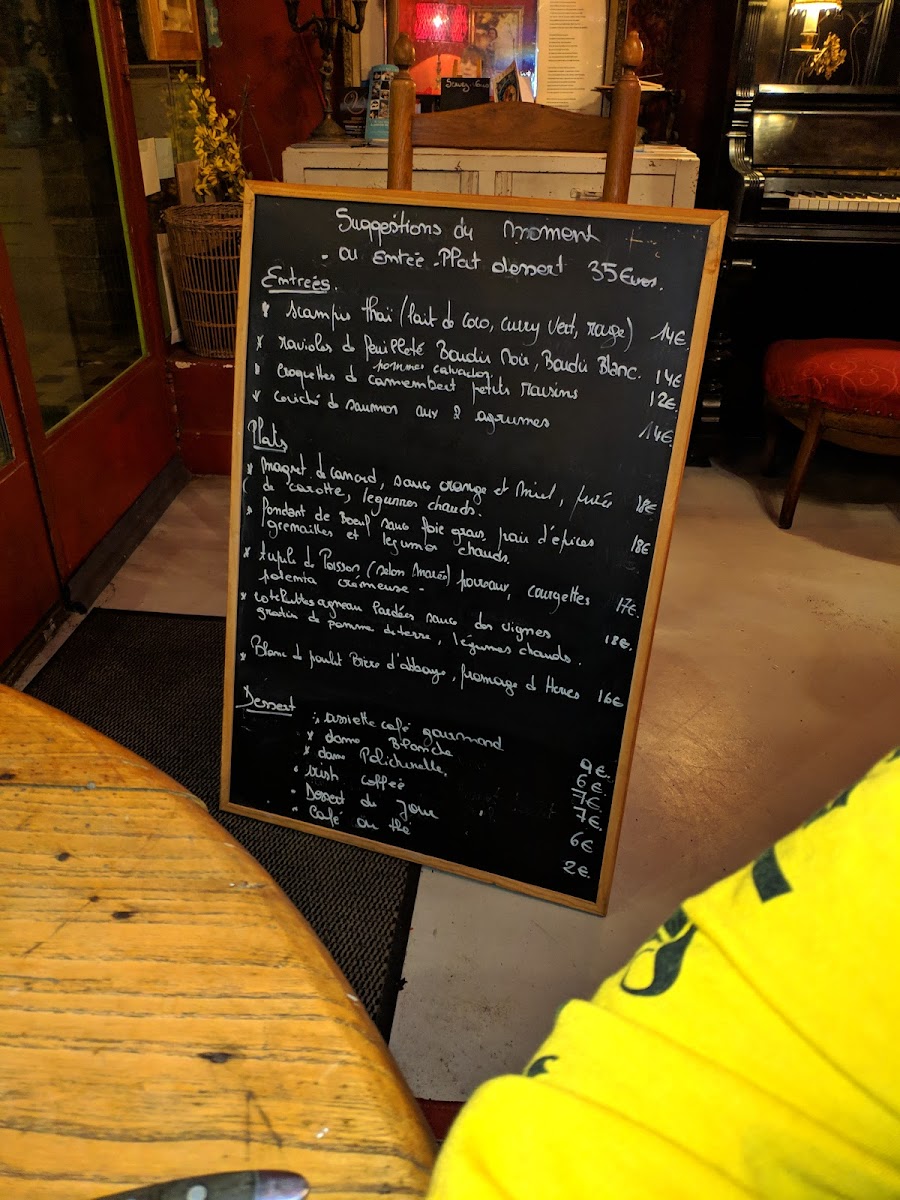 Suggestions du moment
- ou Entrée - Plat dessert 35 Euros.
Entrées.
* scampis thaï (lait de coco, curry vert, rouge) 14€
* ravioles de feuilleté Boudin Noir, Boudin Blanc. 14€
pommes calvados
* croquettes de camembert petits raisins 12€
* ceviché de saumon aux 2 agrumes 14€
Plats
* magret de canard, sauce orange et miel, purée 18€
de carotte, legumes chauds.
* Fondant de Boeuf sauce foie gras, pain d'épices 18€
grenailles et legumes chauds.
* de Poisson (selon Marée) poireaux, courgettes 17€
polenta crémeuse -
* cotelettes agneau Lardées sauce des vignes 18€
gratin de pomme de terre, légumes chauds.
* Blanc de poulet Bière d'abbaye, fromage d Herves 16€
Dessert
assiette café gourmand 9€
* dame Blanche 6€
* dame Polichinelle, 7€
irish coffee 7€
Dessert du jour 6€
Café ou thé 2€
Servez-vous